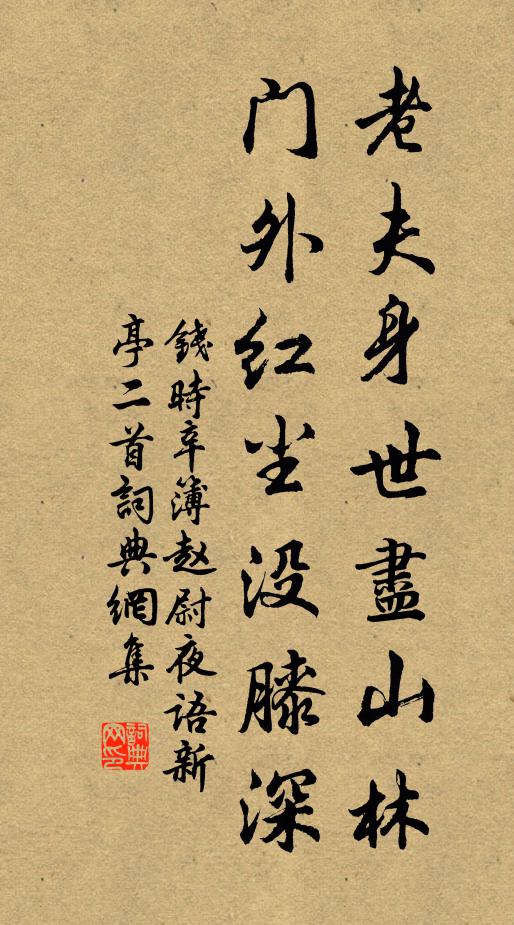 老夫身世盡山林
门外红尘没膝深
錢時辛簿赵尉夜语新
亭二首詞典網集
詞典
网印